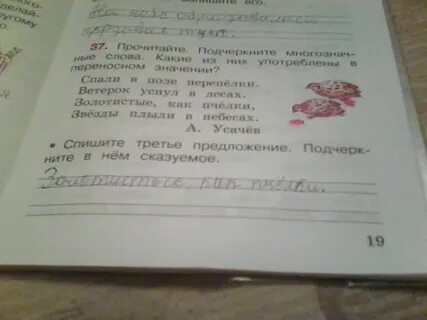 делай.
другому
пишите его.
На небе образовались
грозовые тучи.
37. Прочитайте. Подчеркните многознач-
ные слова. Какие из них употреблены в
переносном значении?
Спали в поле перепёлки,
Ветерок уснул в лесах.
Золотистые, как пчёлки,
Звёзды плыли в небесах.
А. Усачёв
• Спишите третье предложение. Подчерк-
ните в нём сказуемое.
Золотистые, как пчёлки.
19